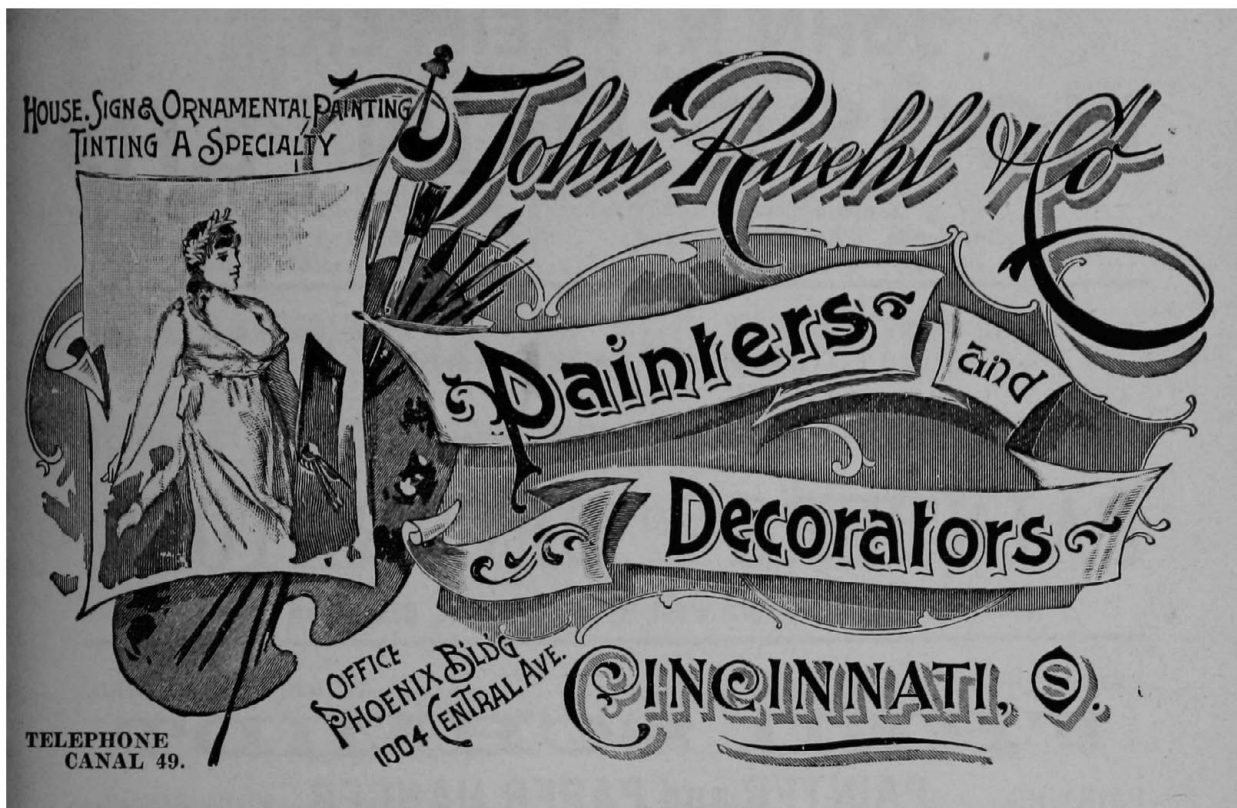 HOUSE, SIGN & ORNAMENTAL PAINTING
TINTING A SPECIALTY
John Ruehl & Co
Painters
and
Decorators
OFFICE
PHOENIX BLD'G
1004 CENTRAL AVE.
CINCINNATI, O.
TELEPHONE
CANAL 49.